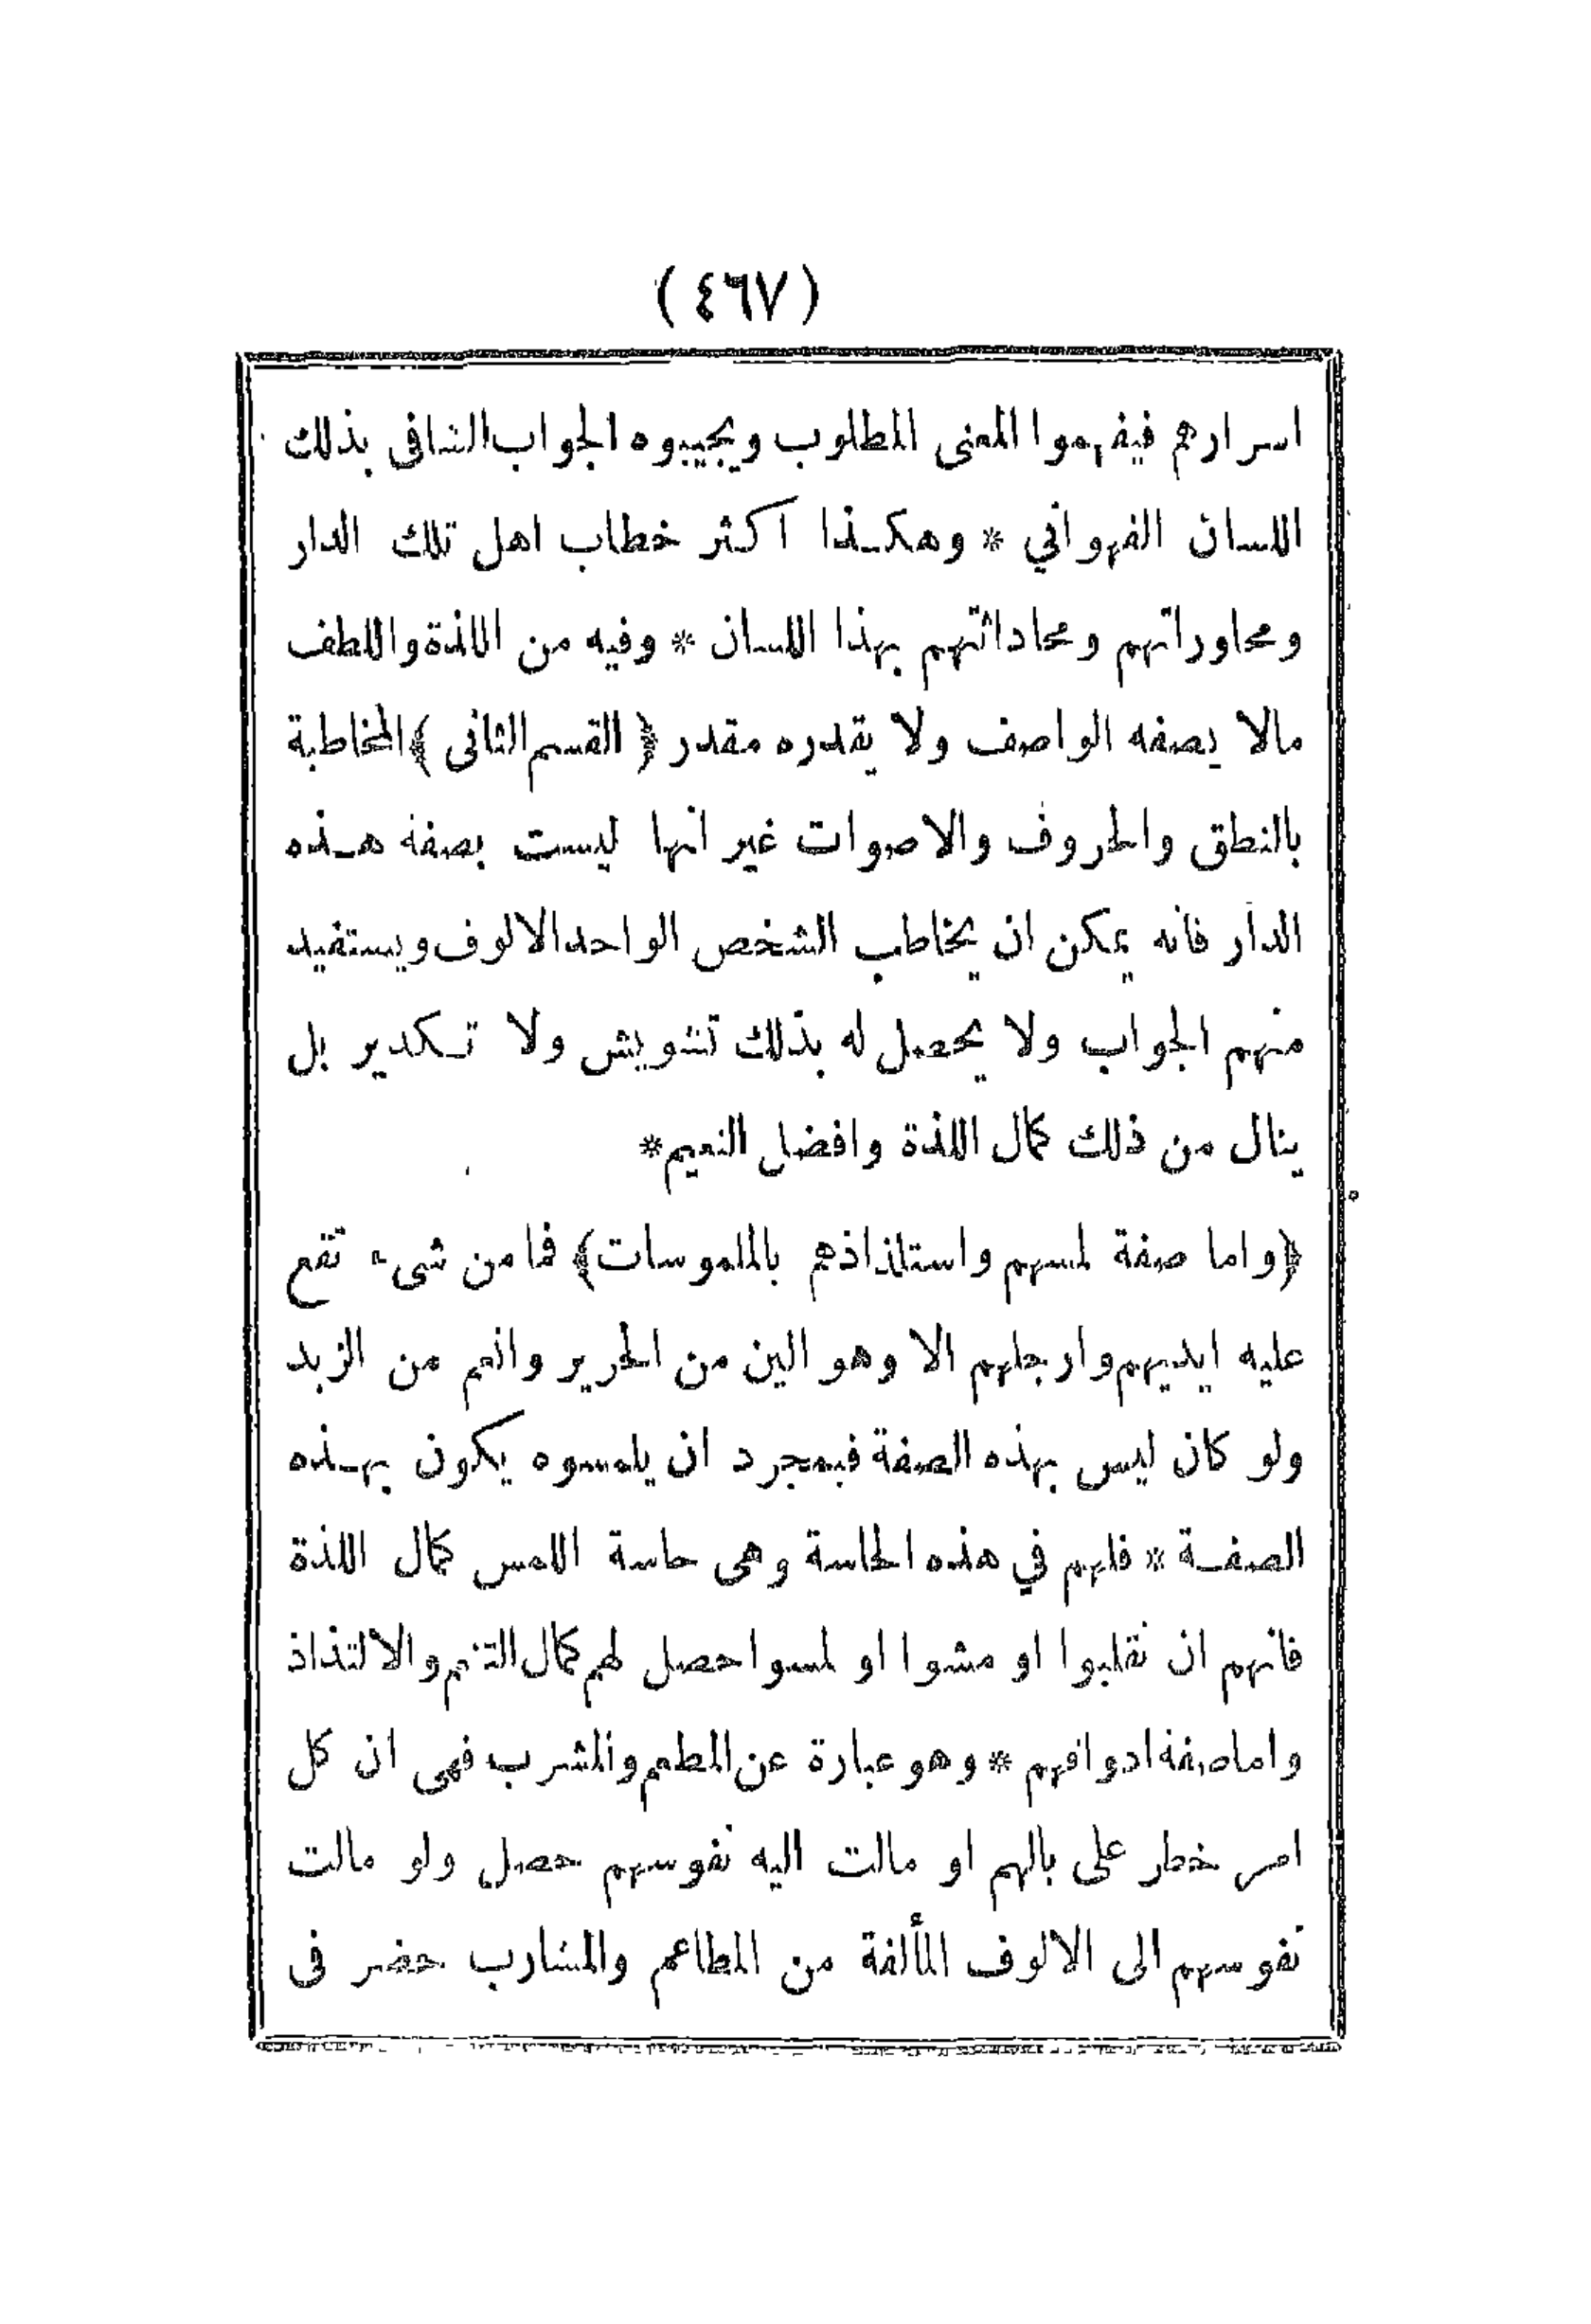 (٤٦٧)
اسرارهم فيفهموا المعنى المطلوب ويجيبوه الجواب الشافى بذلك
اللسان الفهواني * وهكذا اكثر خطاب اهل تلك الدار
ومحاوراتهم ومحادثاتهم بهذا اللسان * وفيه من اللذة واللطف
مالا يصفه الواصف ولا يقدره مقدر ﴿ القسم الثانى ﴾ المخاطبة
بالنطق والحروف والاصوات غير انها ليست بصفة هذه
الدار فانه يمكن ان يخاطب الشخص الواحد الالوف ويستفيد
منهم الجواب ولا يحصل له بذلك تشويش ولا تكدير بل
ينال من ذلك كمال اللذة وافضل النعيم*
﴿واما صفة لمسهم واستلذاذهم بالملموسات﴾ فما من شىء تقع
عليه ايديهم وارجلهم الا وهو الين من الحرير وانعم من الزبد
ولو كان ليس بهذه الصفة فبمجرد ان يلمسوه يكون بهذه
الصفة * فلهم في هذه الحاسة وهى حاسة اللمس كمال اللذة
فانهم ان تقلبوا او مشوا او لمسوا حصل لهم كمال التنعم والالتذاذ
واما صفة اذواقهم * وهو عبارة عن المطعم والمشرب فهى ان كل
امر خطر على بالهم او مالت اليه نفوسهم حصل ولو مالت
نفوسهم الى الالوف المألفة من المطاعم والمشارب حضر فى